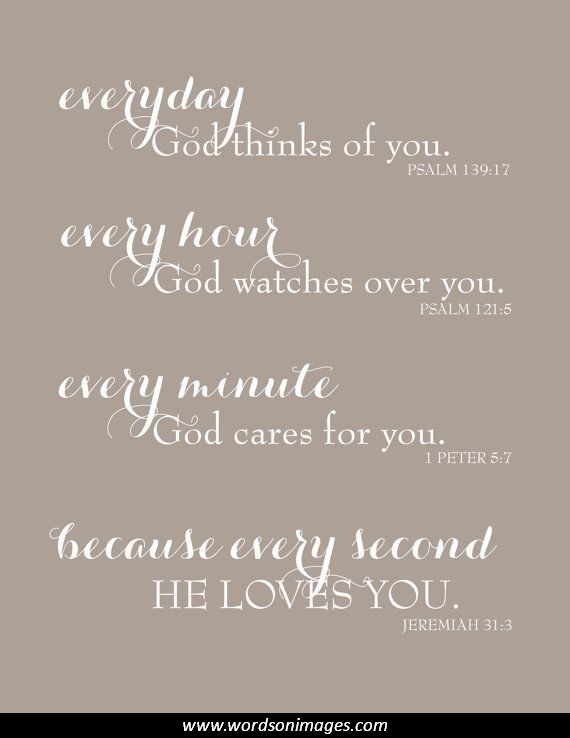 everyday
God thinks of you.
PSALM 139:17
every hour
God watches over you.
PSALM 121:5
every minute
God cares for you.
1 PETER 5:7
because every second
HE LOVES YOU.
JEREMIAH 31:3
www.wordsonimages.com